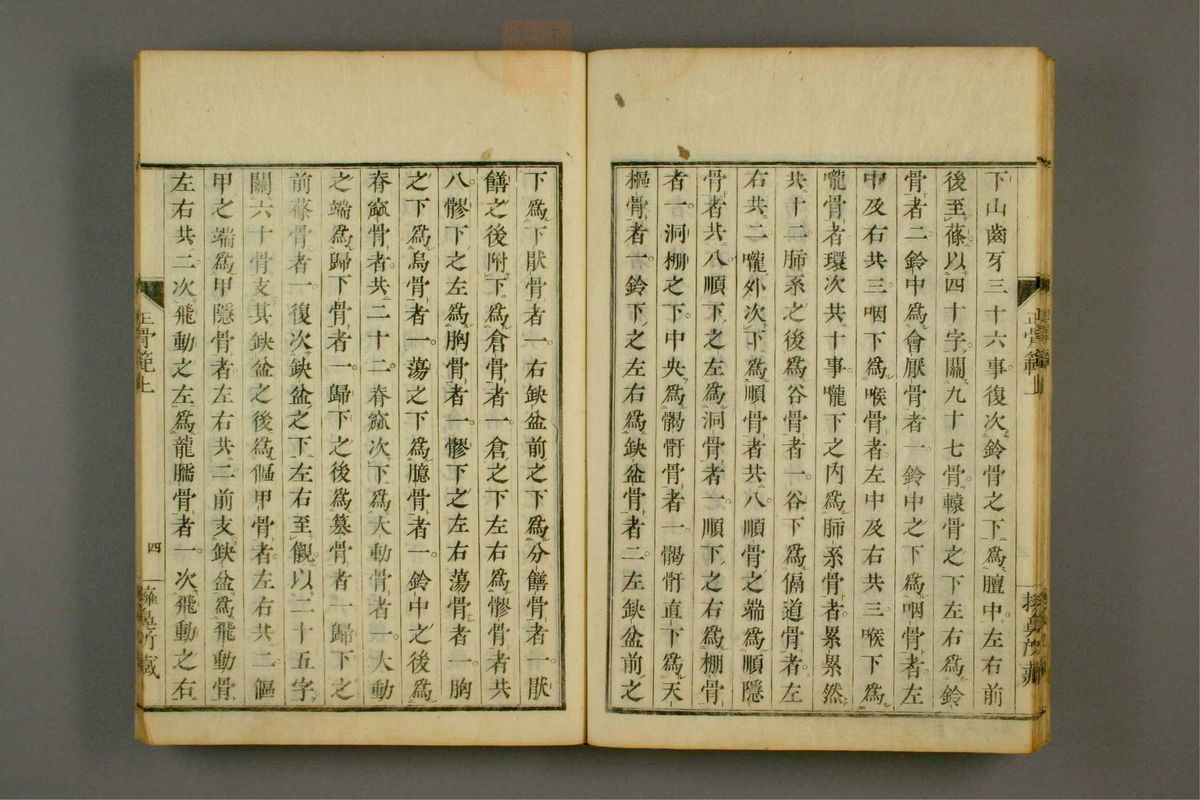 下山齒牙三十六事復次鈴骨之下爲膻中左右前
後至蓧以四十字關九十七骨轅骨之下左右爲鈴
骨者二鈴中爲會厭骨者一鈴中之下爲咽骨者左
中及右共三咽下爲喉骨者左中及右共三喉下爲
嚨骨者環次共十事嚨下之內爲肺系骨者累累然
共十二肺系之後爲谷骨者一谷下爲偪道骨者左
右共二嚨外次下爲順骨者共八順骨之端爲順隱
骨者共八順下之左爲洞骨者一順下之右爲棚骨
者一洞棚之下中央爲𩩲骬骨者一𩩲骬直下爲天
樞骨者一鈴下之左右爲缺盆骨者二左缺盆前之
下爲下猒骨者一右缺盆前之下爲分饍骨者一猒
饍之後附下爲倉骨者一倉之下左右爲髎骨者共
八髎下之左爲胸骨者一髎下之左右蕩骨者一胸
之下爲烏骨者一蕩之下爲臆骨者一鈴中之後爲
脊窳骨者共二十二脊窳次下爲大動骨者一大動
之端爲歸下骨者一歸下之後爲篡骨者一歸下之
前蓧骨者一復次缺盆之下左右至襯以二十五字
關六十骨支其缺盆之後爲傴甲骨者左右共二傴
甲之端爲甲隱骨者左右共二前支缺盆爲飛動骨
左右共二次飛動之左爲龍臑骨者一次飛動之右
正骨範上
四